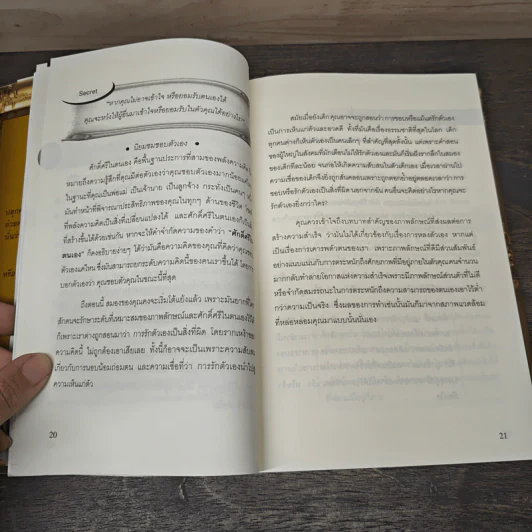 Secret
"หากคุณไม่อาจเข้าใจ หรือยอมรับตนเองได้
คุณจะหวังให้ผู้อื่นมาเข้าใจหรือยอมรับในตัวคุณได้อย่างไร"
• นิยมชมชอบตัวเอง •
ศักดิ์ศรีในตนเอง คือพื้นฐานประการที่สามของพลังความคิด
หมายถึงความรู้สึกที่คุณมีต่อตัวเองว่าคุณชอบตัวเองมากน้อยแค่ไหน
ในฐานะที่คุณเป็นพ่อแม่ เป็นเจ้านาย เป็นลูกจ้าง
มันทำหน้าที่พิจารณาประสิทธิภาพของคุณในทุกๆ ด้านของชีวิต
ที่พลังความคิดเป็นสิ่งที่เปลี่ยนแปลงได้ และศักดิ์ศรีในตนเองก็เป็นสิ่ง
ที่สร้างขึ้นได้ด้วยเช่นกัน หากจะให้คำจำกัดความของคำว่า "ศักดิ์ศรีใน
ตนเอง" ก็คงอธิบายง่ายๆ ได้ว่ามันคือความคิดของคุณที่คิดว่าคุณชอบ
ตัวเองแค่ไหน ซึ่งมันสามารถยกระดับความคิดนี้ของคนเราขึ้นได้ โดยการ
บอกตัวเองว่า คุณชอบตัวคุณในขณะนี้ที่สุด
ถึงตอนนี้ สมองของคุณคงจะเริ่มโต้แย้งแล้ว เพราะมันยากที่ใคร
สักคนจะรักษาระดับที่เหมาะสมของภาพลักษณ์และศักดิ์ศรีในตนเองไว้
ก็เพราะเราต่างถูกสอนมาว่า การรักตัวเองเป็นสิ่งที่ผิด โดยรากเหง้าของ
ความคิดนี้ ไม่ถูกต้องเอาเสียเลย ทั้งนี้ก็อาจจะเป็นเพราะความสับสน
เกี่ยวกับการนอบน้อมถ่อมตน และความเชื่อที่ว่า การรักตัวเองนำไปสู่
ความเห็นแก่ตัว
20
สมัยเมื่อยังเด็ก คุณอาจจะถูกสอนว่า การชอบหรือแม้แต่รักตัวเอง
เป็นการเห็นแก่ตัวและอวดดี ทั้งที่มันคือเรื่องธรรมชาติที่สุดในโลก เด็ก
ทุกคนต่างก็เห็นตัวเองเป็นคนเล็กๆ ที่สำคัญที่สุดทั้งนั้น แต่เพราะคำสอน
ของผู้ใหญ่ในสังคมที่มักเตือนไม่ให้รักตัวเองและมันก็ซึมซับรากลึกในสมอง
ของเด็กทีละน้อย จนก่อให้เกิดความสับสนในตัวเด็กเอง เมื่อเวลาผ่านไป
ความเชื่อของเด็กจึงยิ่งถูกสั่นคลอนเพราะถูกตอกย้ำอยู่ตลอดเวลาว่า การ
ชอบหรือรักตัวเองเป็นสิ่งผิด นอกจากฉัน คนอื่นจะคิดอย่างไรหากคุณจะ
รักตัวเองยิ่งกว่าใคร?
คุณควรเข้าใจถึงบทบาทสำคัญของภาพลักษณ์ที่ส่งผลต่อการ
สร้างความสำเร็จ ว่ามันไม่ได้เกี่ยวข้องกับเรื่องการหลงตัวเอง หากแต่
เป็นเรื่องการเคารพตัวตนของเรา เพราะภาพลักษณ์ที่ดีมีส่วนสัมพันธ์
อย่างแนบแน่นกับการตระหนักถึงศักยภาพที่มีอยู่ภายในตัวคุณ คนจำนวน
มากกลับทำลายโอกาสแห่งความสำเร็จเพราะมีภาพลักษณ์ส่วนตัวที่ไม่ดี
หรือจำกัดสมรรถนะในการตระหนักถึงความสามารถของตนเองเอาไว้ต่ำ
กว่าความเป็นจริง ซึ่งผลของการทำเช่นนั้นมันก็มาจากสภาพแวดล้อม
ที่หล่อหลอมคุณมาแบบนั้นนั่นเอง
21